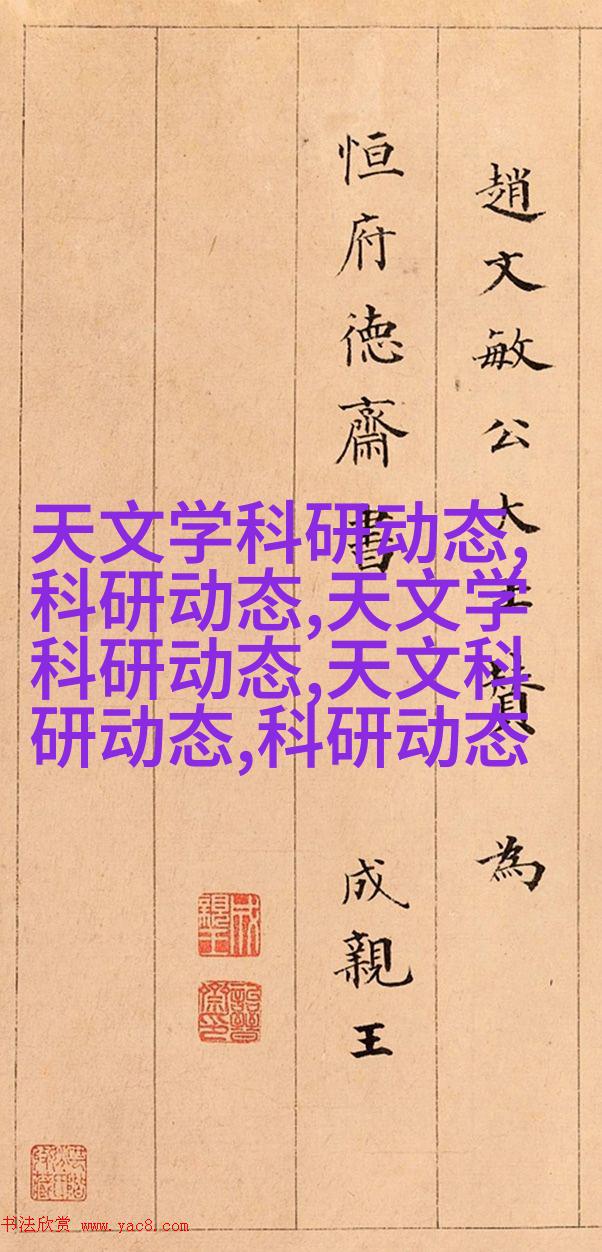 趙文敏公大士贊為
恒府徳齋書
成親王
天文学科研动态,
科研动态,天文学
科研动态,天文科
研动态,科研动态
成親王
詒晉齋印
书法欣赏 www.yac8.com